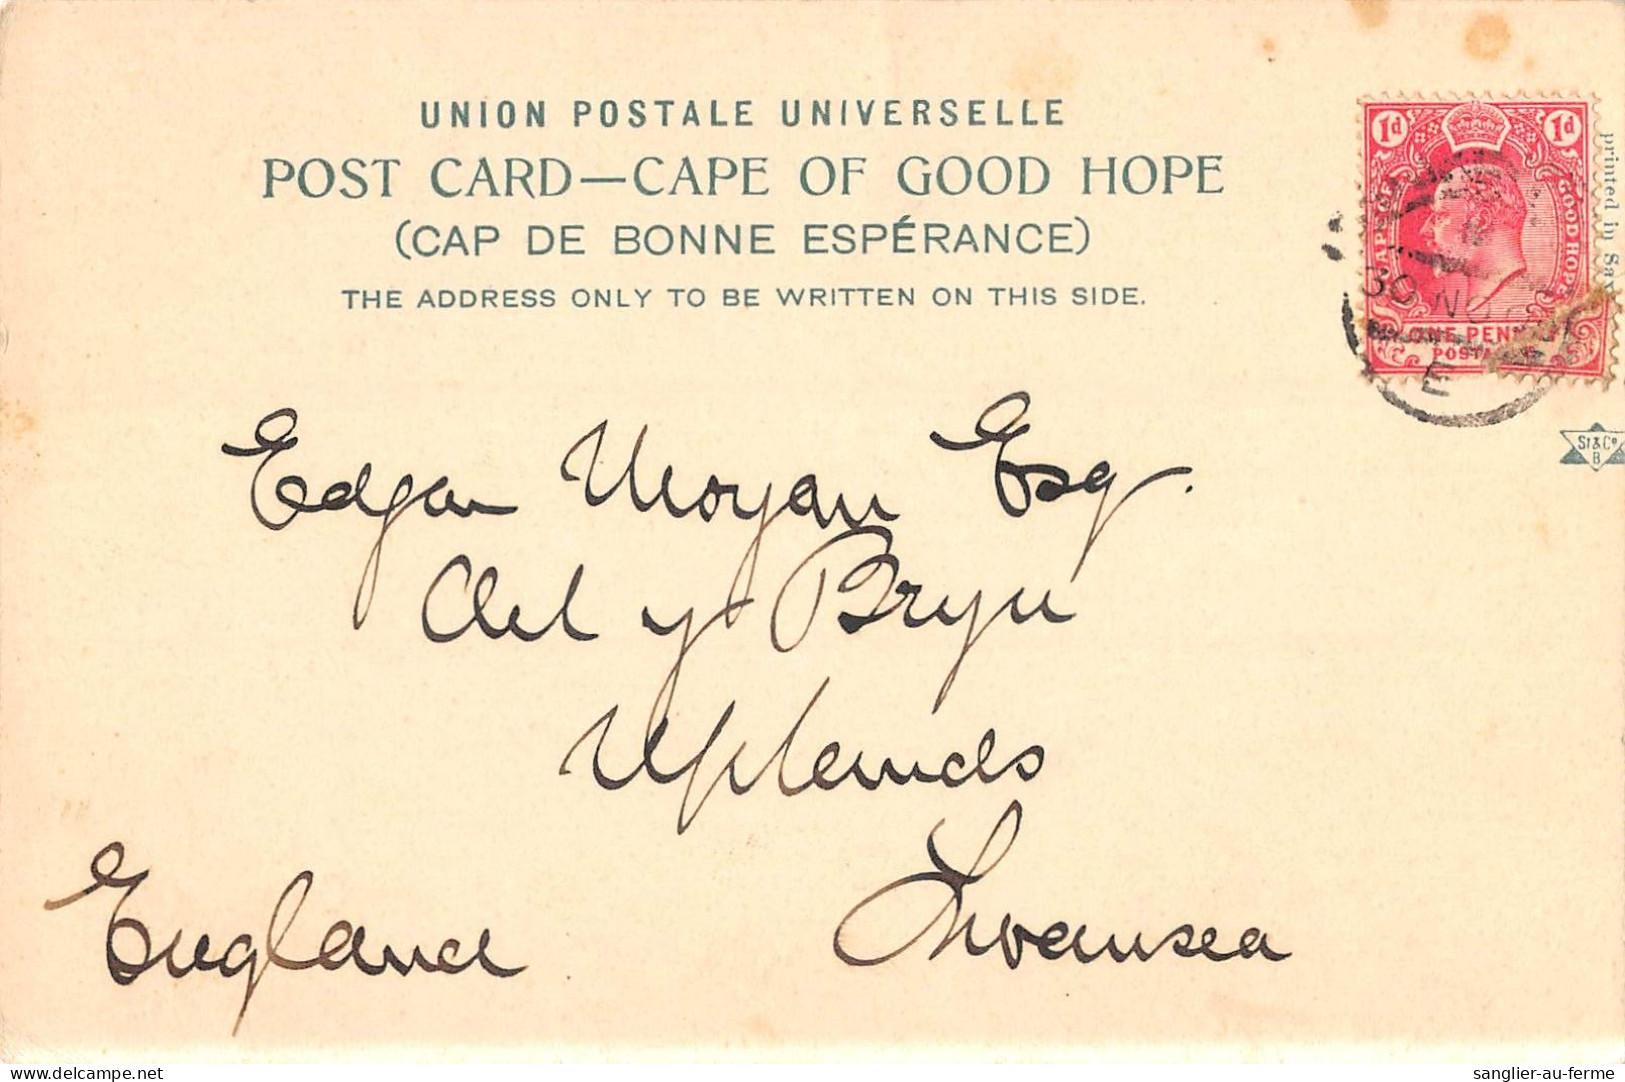 UNION POSTALE UNIVERSELLE
POST CARD—CAPE OF GOOD HOPE
(CAP DE BONNE ESPÉRANCE)
THE ADDRESS ONLY TO BE WRITTEN ON THIS SIDE.
1d 1d
CAPE OF GOOD HOPE
ONE PENNY
30 NO
E
printed in Sax
St & Co
B
Edgar Morgan Esq.
Ael y Bryn
Uplands
Swansea
England
delcampe.net
sanglier-au-ferme